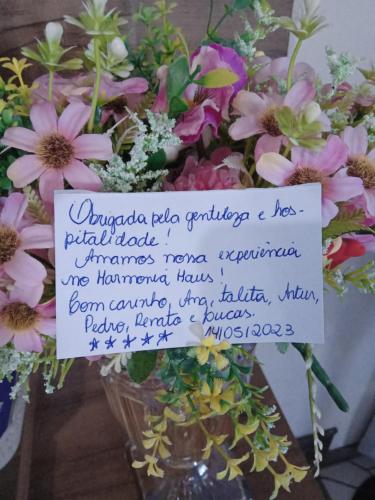 Obrigada pela gentileza e hos-
pitalidade!
Amamos nossa experiência
no Harmonia Haus!
Com carinho, Ana, Talita, Artur,
Pedro, Renato e Lucas.
★★★★★ 14/05/2023